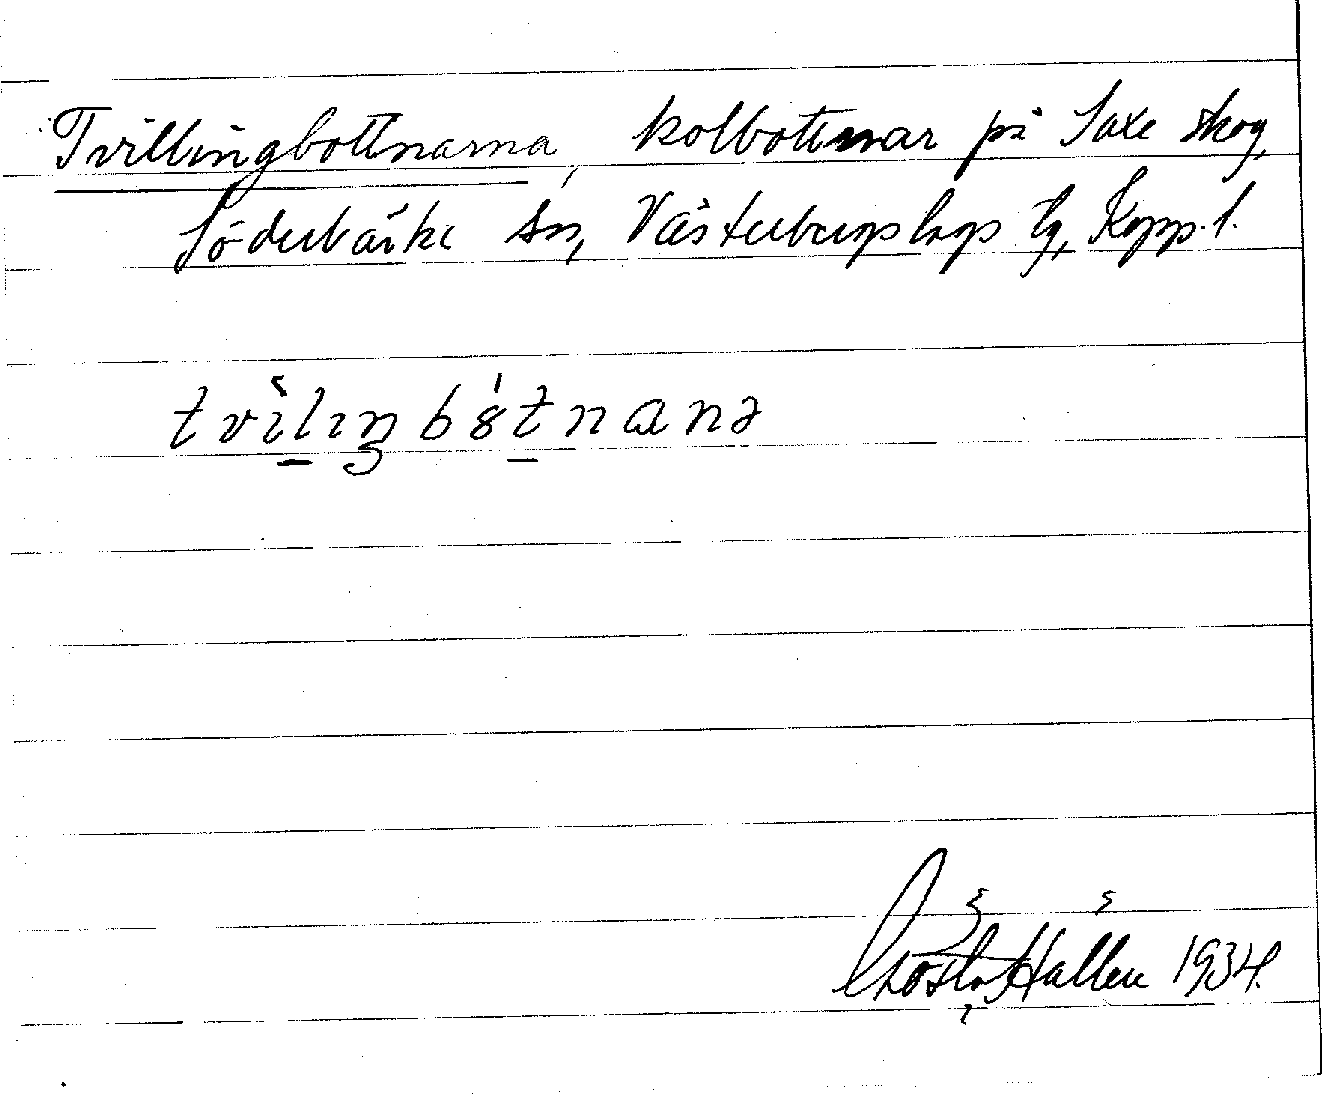 Tvillingbottnarna, kolbottnar på Saxe skog,
Söderbärke sn, Västerbergslags tg, Kopp. l.
tvìlıŋbótnanə
Gösta Hallén 1934.